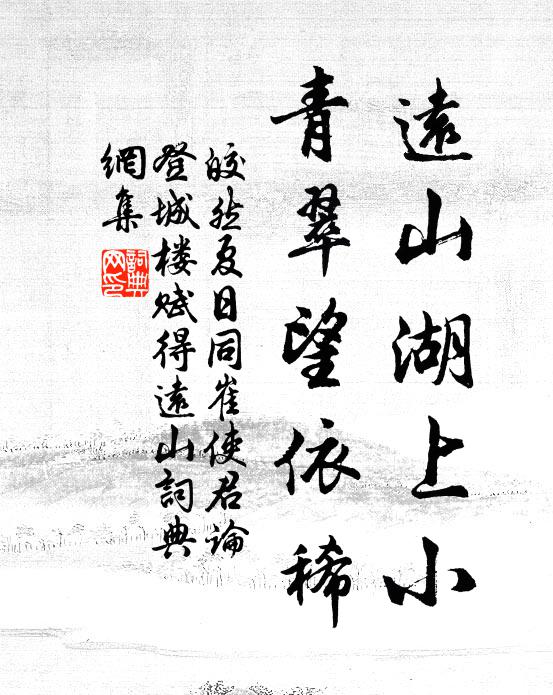 遠山湖上小
青翠望依稀
皎然夏日同崔使君論
登城楼赋得遠山詞典
網集
詞典网印